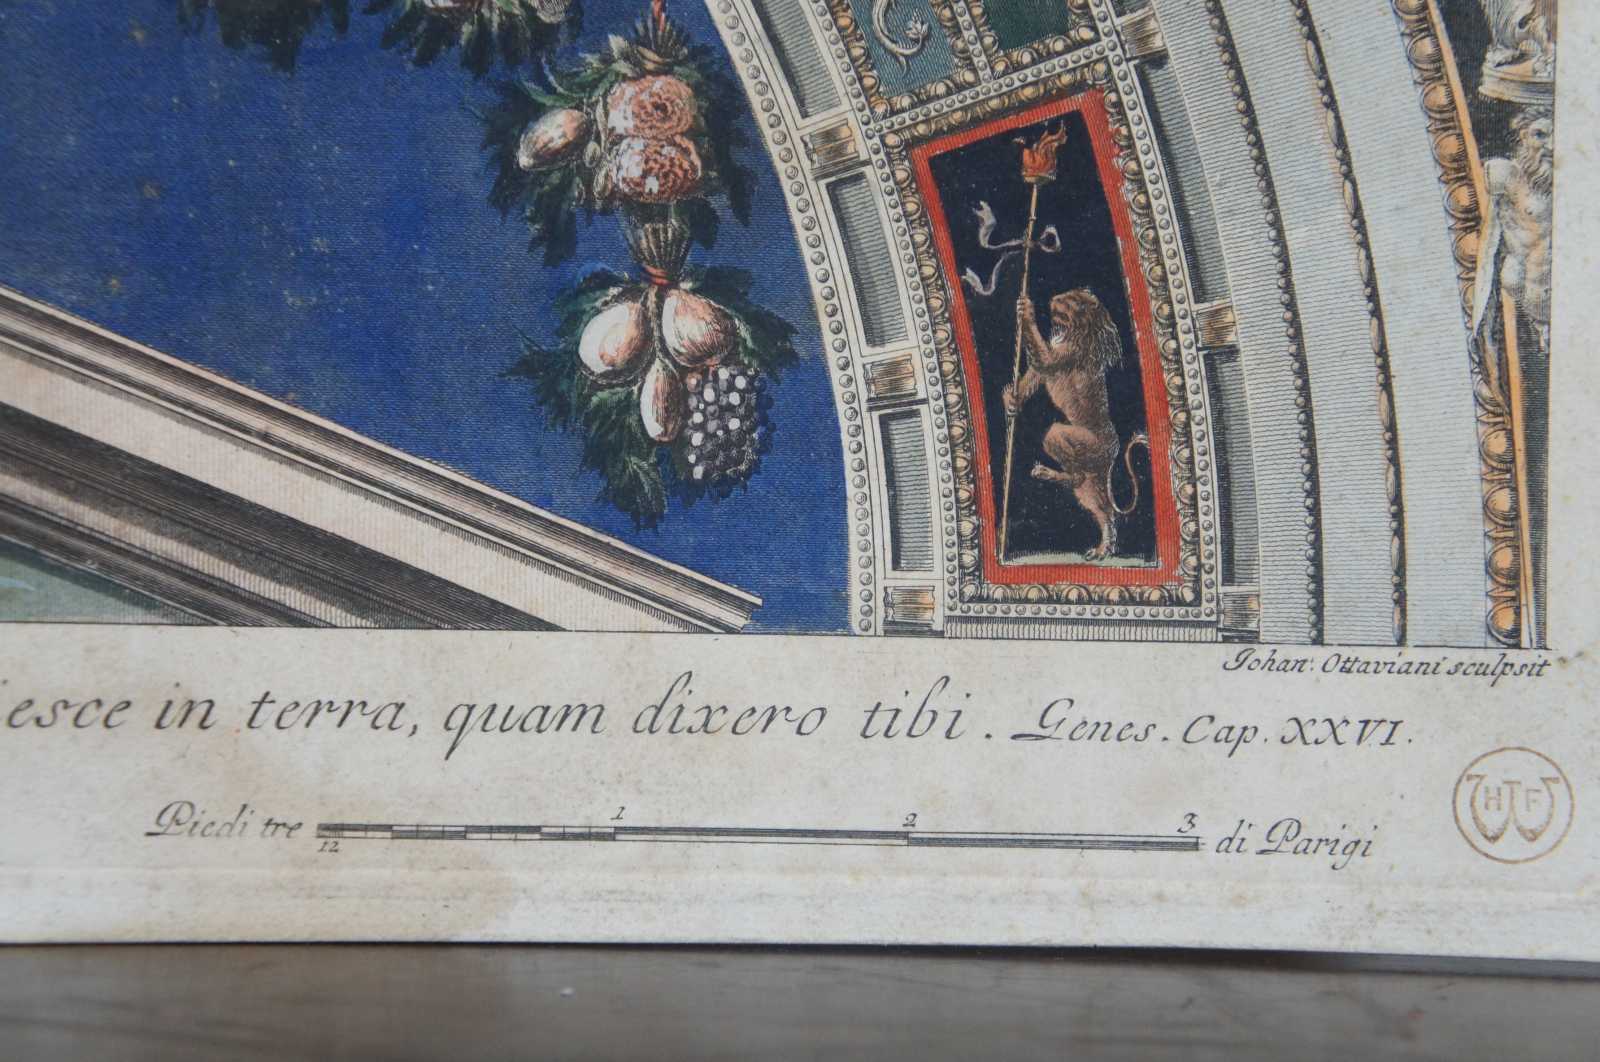 Johan: Ottaviani sculpsit
esce in terra, quam dixero tibi. Genes. Cap. XXVI.
Piedi tre 12 1 2 3 di Parigi
HTF